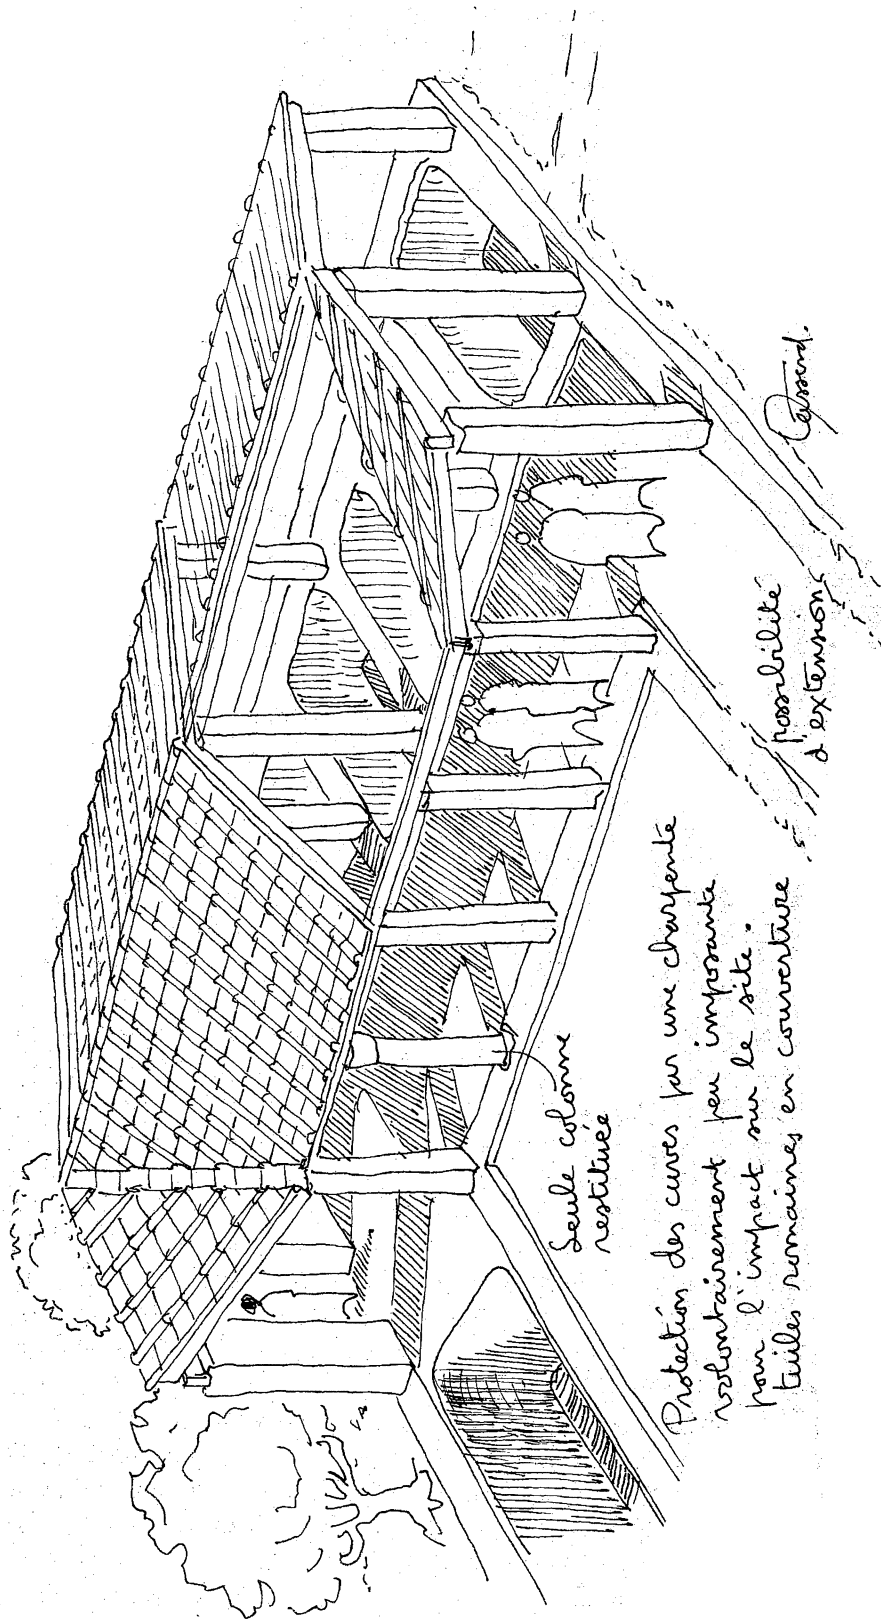 Seule colonne
restituée
Protection des cuves par une charpente
volontairement peu imposante
pour l'impact sur le site.
tuiles romaines en couverture
possibilité
d'extension